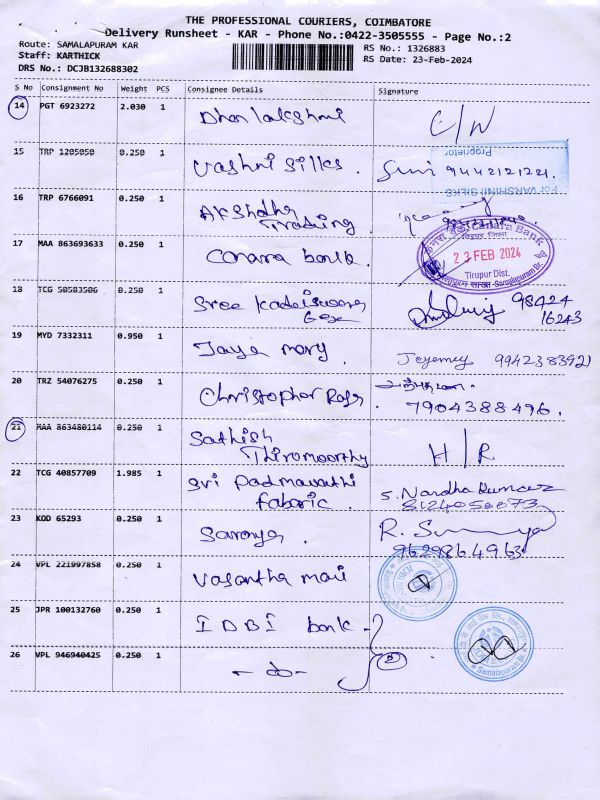 THE PROFESSIONAL COURIERS, COIMBATORE
Delivery Runsheet - KAR - Phone No.:0422-3505555 - Page No.:2
Route: SAMALAPURAM KAR
Staff: KARTHICK
DRS No.: DCJB132688302
RS No.: 1326883
RS Date: 23-Feb-2024
S No Consignment No Weight PCS Consignee Details Signature
14 PGT 6923272 2.030 1 Dhanlakshmi C/N
15 TRP 1205050 0.250 1 Vashni Silks. 9442121221.
Proprietor
For VARSHINI SILKS
16 TRP 6766091 0.250 1 Trading
17 MAA 863693633 0.250 1 Canara bank.
Canara Bank
23 FEB 2024
Tirupur Dist.
Samalapuram Br.
18 TCG 50583506 0.250 1 Sree 98424
16243
19 MYD 7332311 0.950 1 Jaya mary 9942383921
20 TRZ 54076275 0.250 1 Christopher Raja
7904388496.
21 MAA 863480114 0.250 1 Sathish
Thiromoorthy H/R
22 TCG 40857709 1.985 1 Sri Padmavathi
fabaric. S. Nandha Kumar
8124050873
23 KOD 65293 0.250 1 Saranya.
9629864963
24 VPL 221997858 0.250 1 Vasantha mani
25 JPR 100132760 0.250 1 IDBI bank
26 VPL 946940425 0.250 1
Samalapuram Br.